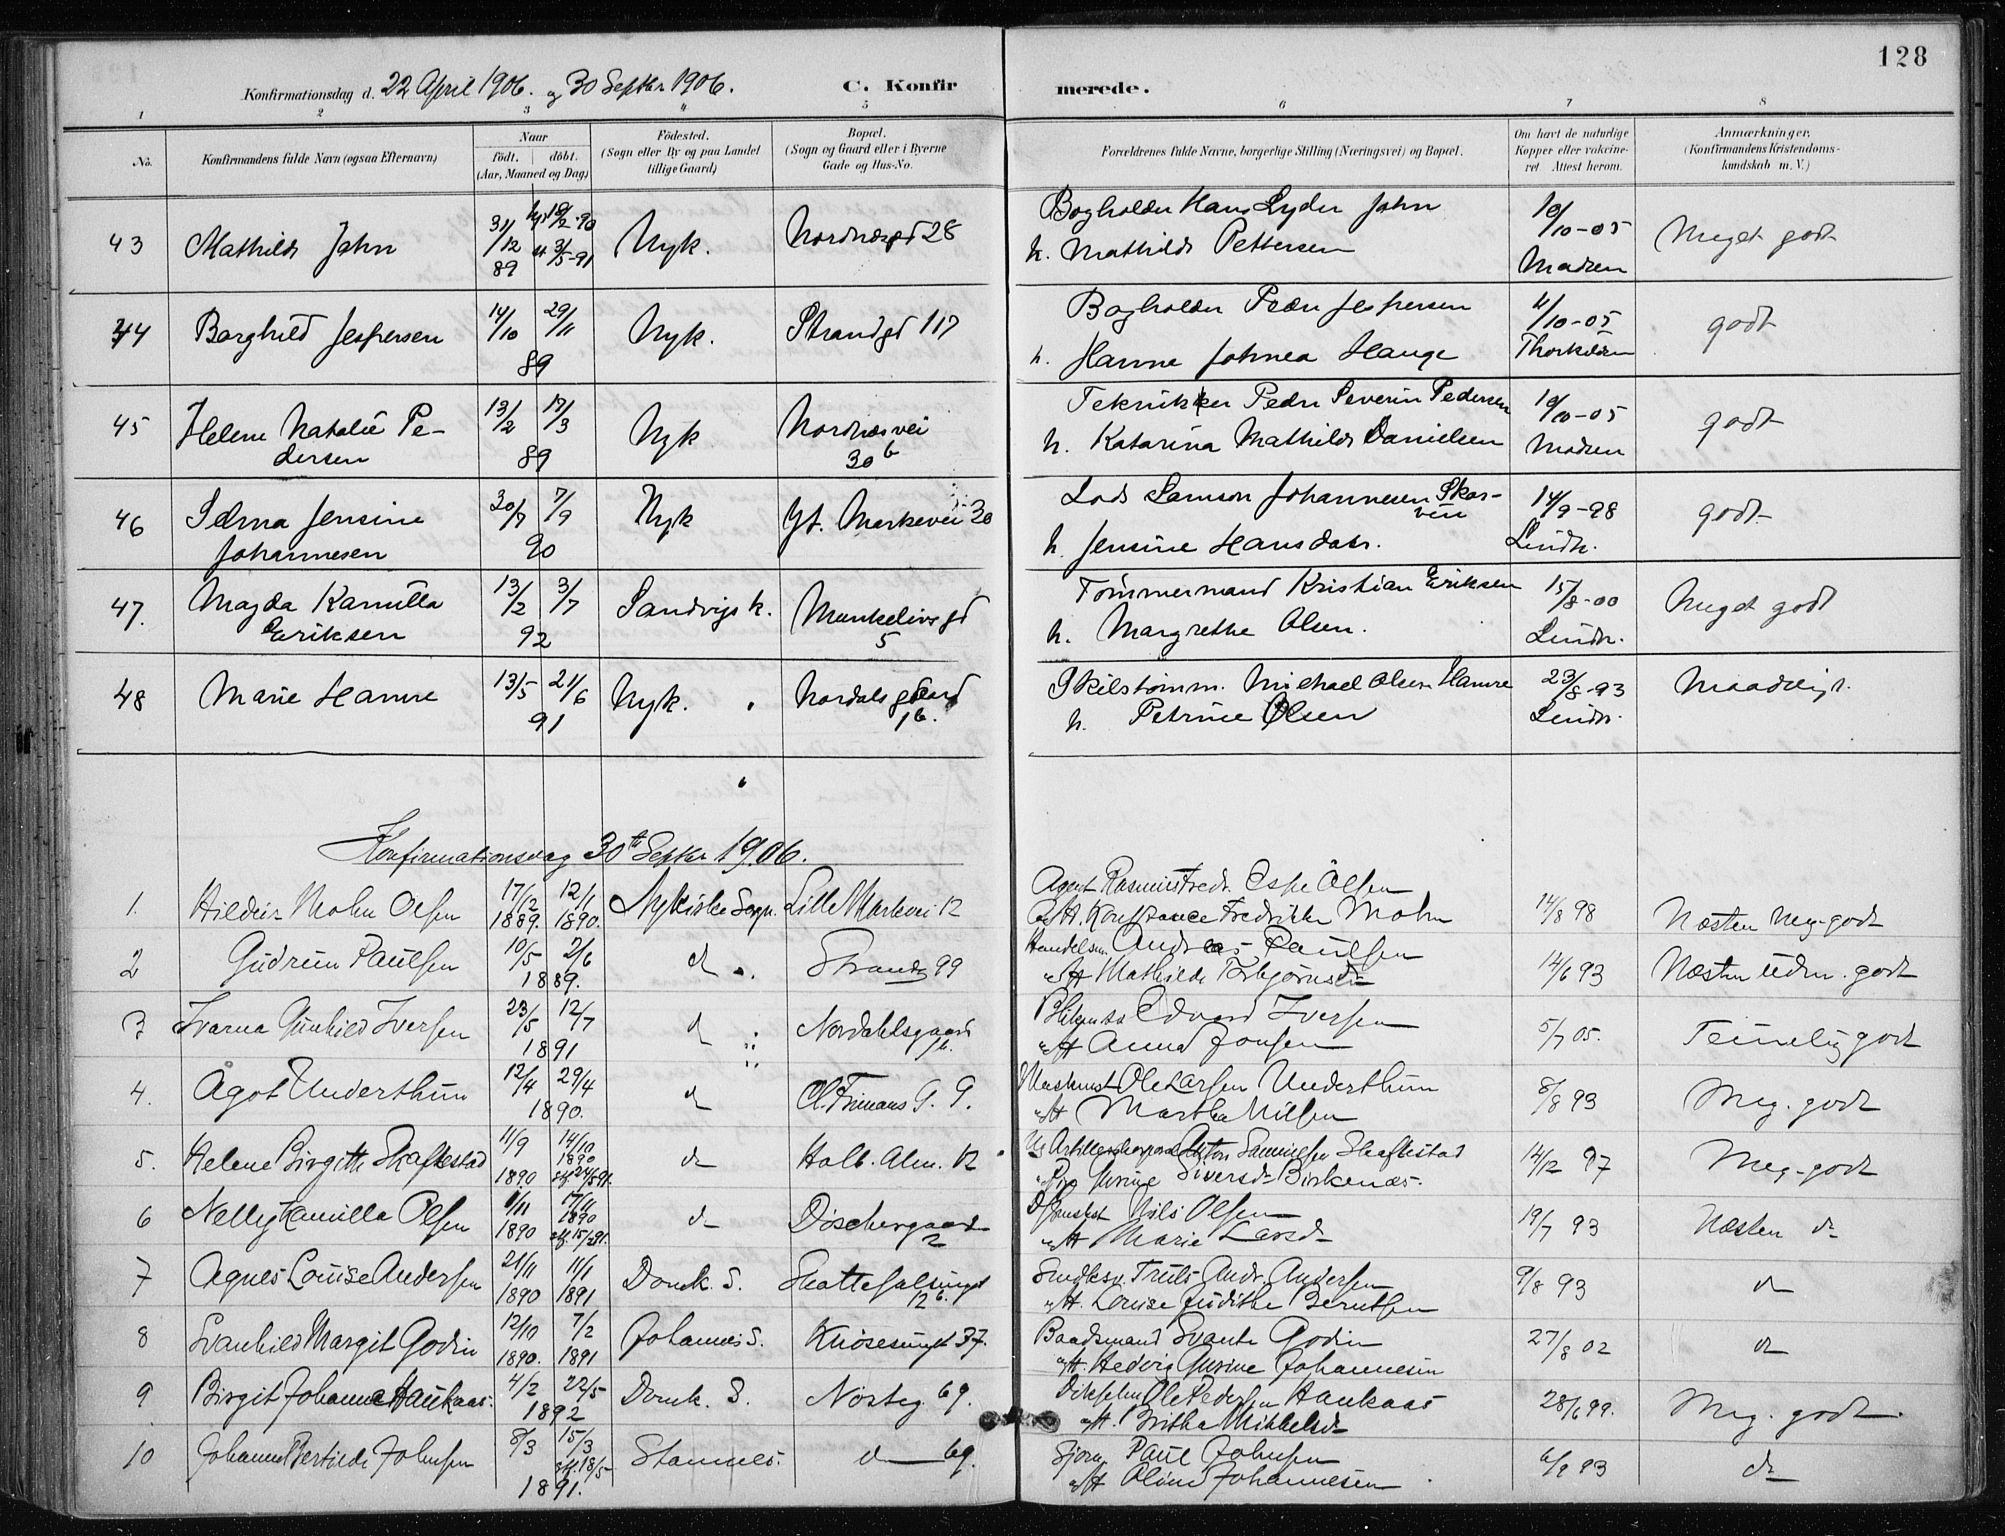 128
Konfirmationsdag d. 22 April 1906. og 30 Septbr 1906.
C. Konfirmerede.
1 2 3 4 5 6 7 8
No.
Konfirmandens fulde Navn (ogsaa Efternavn)
Naar
født. døbt.
(Aar, Maaned og Dag)
Fødested.
(Sogn eller By og paa Landet
tillige Gaard)
Bopæl.
(Sogn og Gaard eller i Byerne
Gade og Hus-No.
Forældrenes fulde Navne, borgerlige Stilling (Næringsvei) og Bopæl.
Om havt de naturlige
Kopper eller vakcine-
ret Attest herom.
Anmærkninger.
(Konfirmandens Kristendoms-
kundskab m. V.)
43 Mathilde Jahn 31/12 89 3/5-91 Nyk. Nordnæsgd 28 Bogholder Hans Lyder Jahn
h. Mathilde Pettersen 10/10-05 Madsen Meget godt
44 Borghild Jespersen 14/10 29/11 89 Nyk. Strandgd 117 Bogholder Peder Jespersen
h. Hanne Johnea Hauge 4/10-05 Thorkildsen godt
45 Helene Natalie Pe-
dersen 13/2 17/3 89 Nyk Nordnæsvei
30 b Tekniker Peder Severin Pedersen
h. Katarina Mathilde Danielsen 10/10-05 Madsen godt
46 Selma Jensine
Johannesen 30/7 7/9 90 Nyk Yt. Markevei 20 Lods Samson Johannesen Skar-
vin
h. Jensine Hansdatr. 14/9-98 Lindh. godt
47. Magda Kamilla
Eriksen 13/2 3/7 92 Sandvigsk. Munkelivsgd
5 Tømmermand Kristian Eriksen
h. Margrethe Olsen. 15/8-00 Lindh. Meget godt
48 Marie Hamre 13/5 21/6 91 Nyk. Nordalsgaard
16. Skibstømm. Michael Olsen Hamre
h. Petrine Olsen 23/8-93 Lindh. Maadeligt.
Konfirmationsdag 30te Septbr 1906.
1. Mohn Olsen 17/12 1889. 12/1 1890. Nykirke Sogn. Lille Markevei 12 Agent Rasmus Fredr. Olsen
og H. Konstance Fredrikke Mohn 14/8 98 Næsten Meg. godt
2 Gudrun Paulsen 10/5 2/6 1889. do Strandg 99 Handelsm. Andreas Paulsen
og H Mathilde Torbjørnsen 14/6 93 Næsten udm. godt
3 Ivarna Gunhild Iversen 23/5 12/7 1891 do Nordahlsgaard
16. Edvard Iversen
og H Anna Jonsen 5/7 05. Temelig godt
4. Agot Underthun 12/4 29/4 1890. do Cl. Frimans G. 9. Maskinist Ole Larsen Underthun
og H Martha Nilsen 8/8 93 Meg. godt
5. Helene Birgitte Skaftestad 11/9 1890 14/10 1890 do Holb. Alm. 12 Anton Samuelsen Skaftestad
Siversd Birkenæs. 14/12 97 Meg. godt
6 Nelly Kamilla Olsen 1/11 1890 17/11 1890 do Dischergaard
2 Nils Olsen
og H Marie Larsd 19/7 93 Næsten do
7 Agnes Louise Andersen 21/11 1890 11/1 1891 Domk. S. Skottesalsunget
12 b. Smedksv. Truls Andr. Andersen
og H. Louise Judithe Berntsen 9/8 93 do
8 Svanhild Margit Godin 12/10 1890. 7/2 1891 Johannes S. Knøsesmuget 37. Baadsmand Svante Godin
og H. Hedvig Gurine Johannesen 27/8 02 do
9 Birgit Johanne Haukaas. 4/2 22/5 1892 Domk. S. Nøsteg 69. Ole Pedersen Haukaas
og H. Britha Mikkelsd 28/6 99. Meg. godt
10 Johanne Bertine Johnsen 8/3 15/3 1891. Stamnes. do 69. Sjøm. Paul Johnsen
og H Oline Johannesen 6/9 93 do